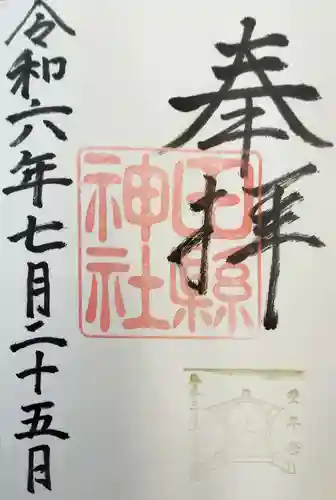 奉拝
田縣
神社
令和六年七月二十五月